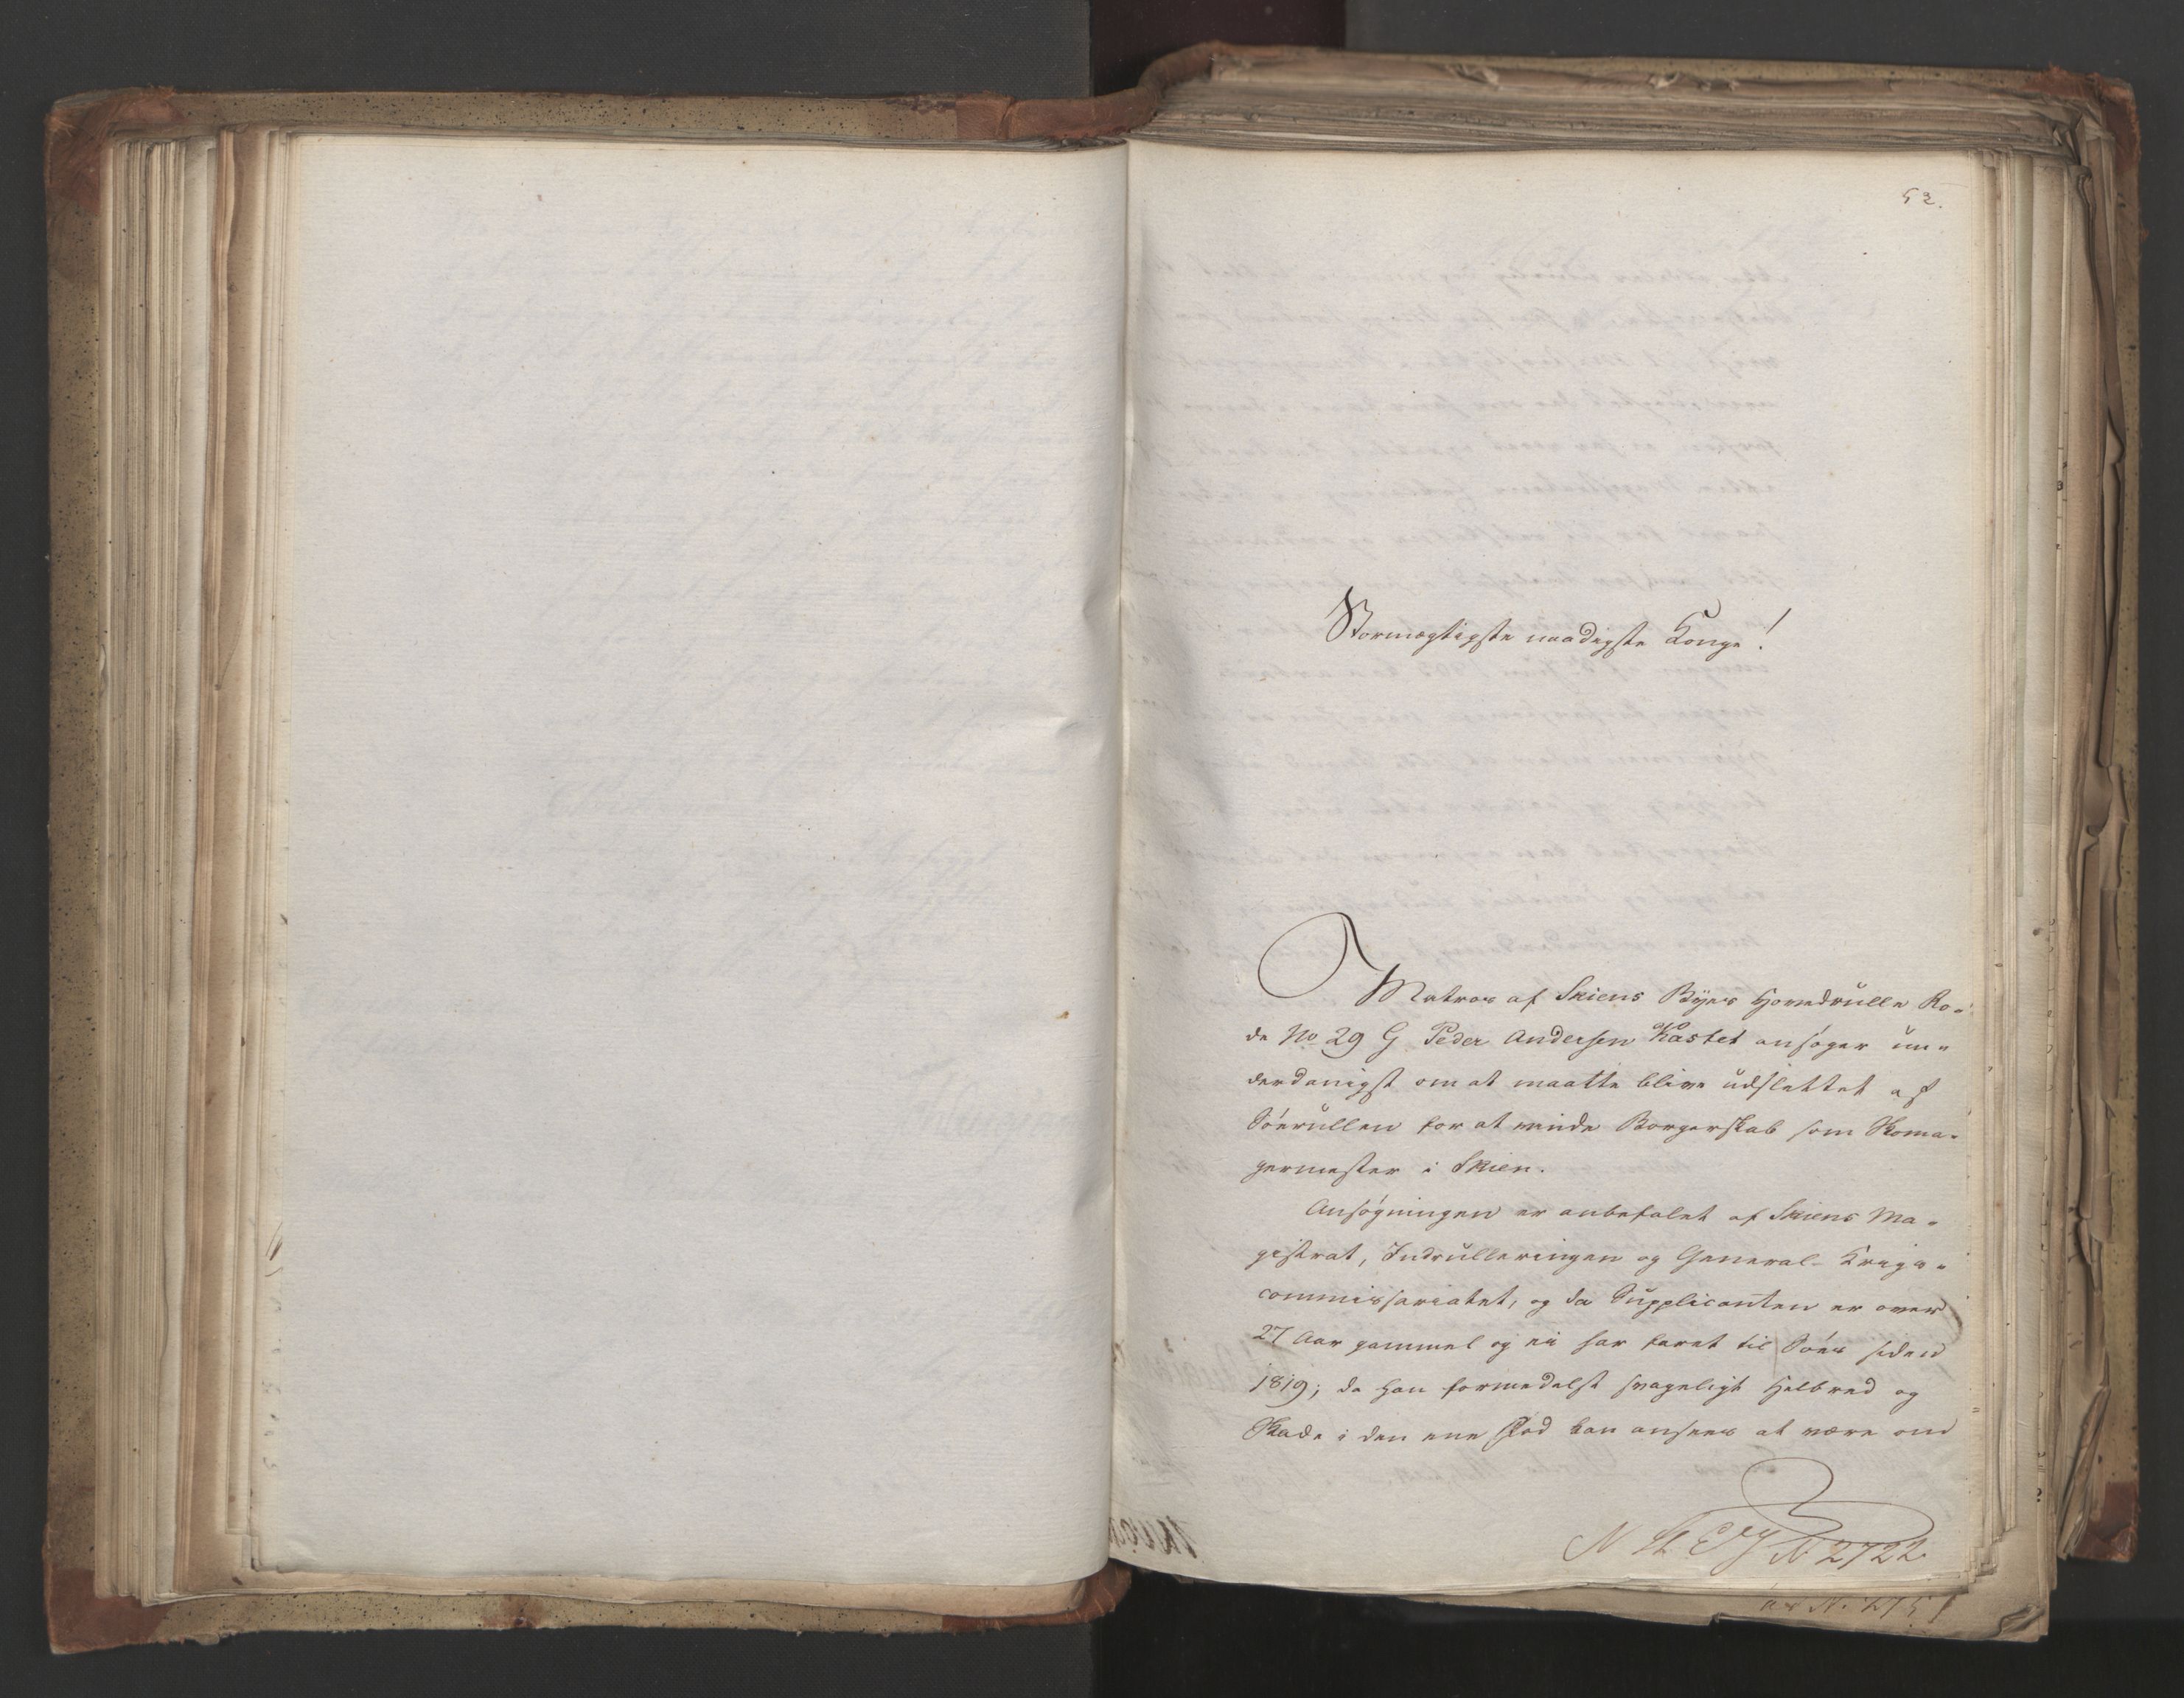 52.
Stormægtigste naadigste Konge!
Matros af Skiens Byes Hovedrulle Ro-
de No 29 G Peder Andersen Kastet ansøger un-
derdanigst om at maatte blive udslettet af
Söerullen for at vinde Borgerskab som Skoma-
germester i Skien.
Ansøgningen er anbefalet af Skiens Ma-
gistrat, Indrulleringen og General-Krigs-
commissariatet, og da Supplicanten er over
27 Aar gammel og ei har faret til Söes siden
1819; da han formedelst svageligt Helbred og
Skade i den ene Fod kan ansees at være om
N 2722